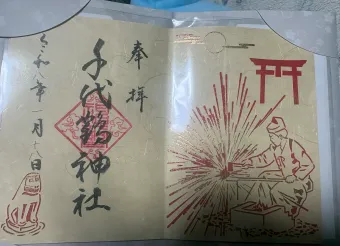 奉拝
千代鶴神社
令和八年一月十八日